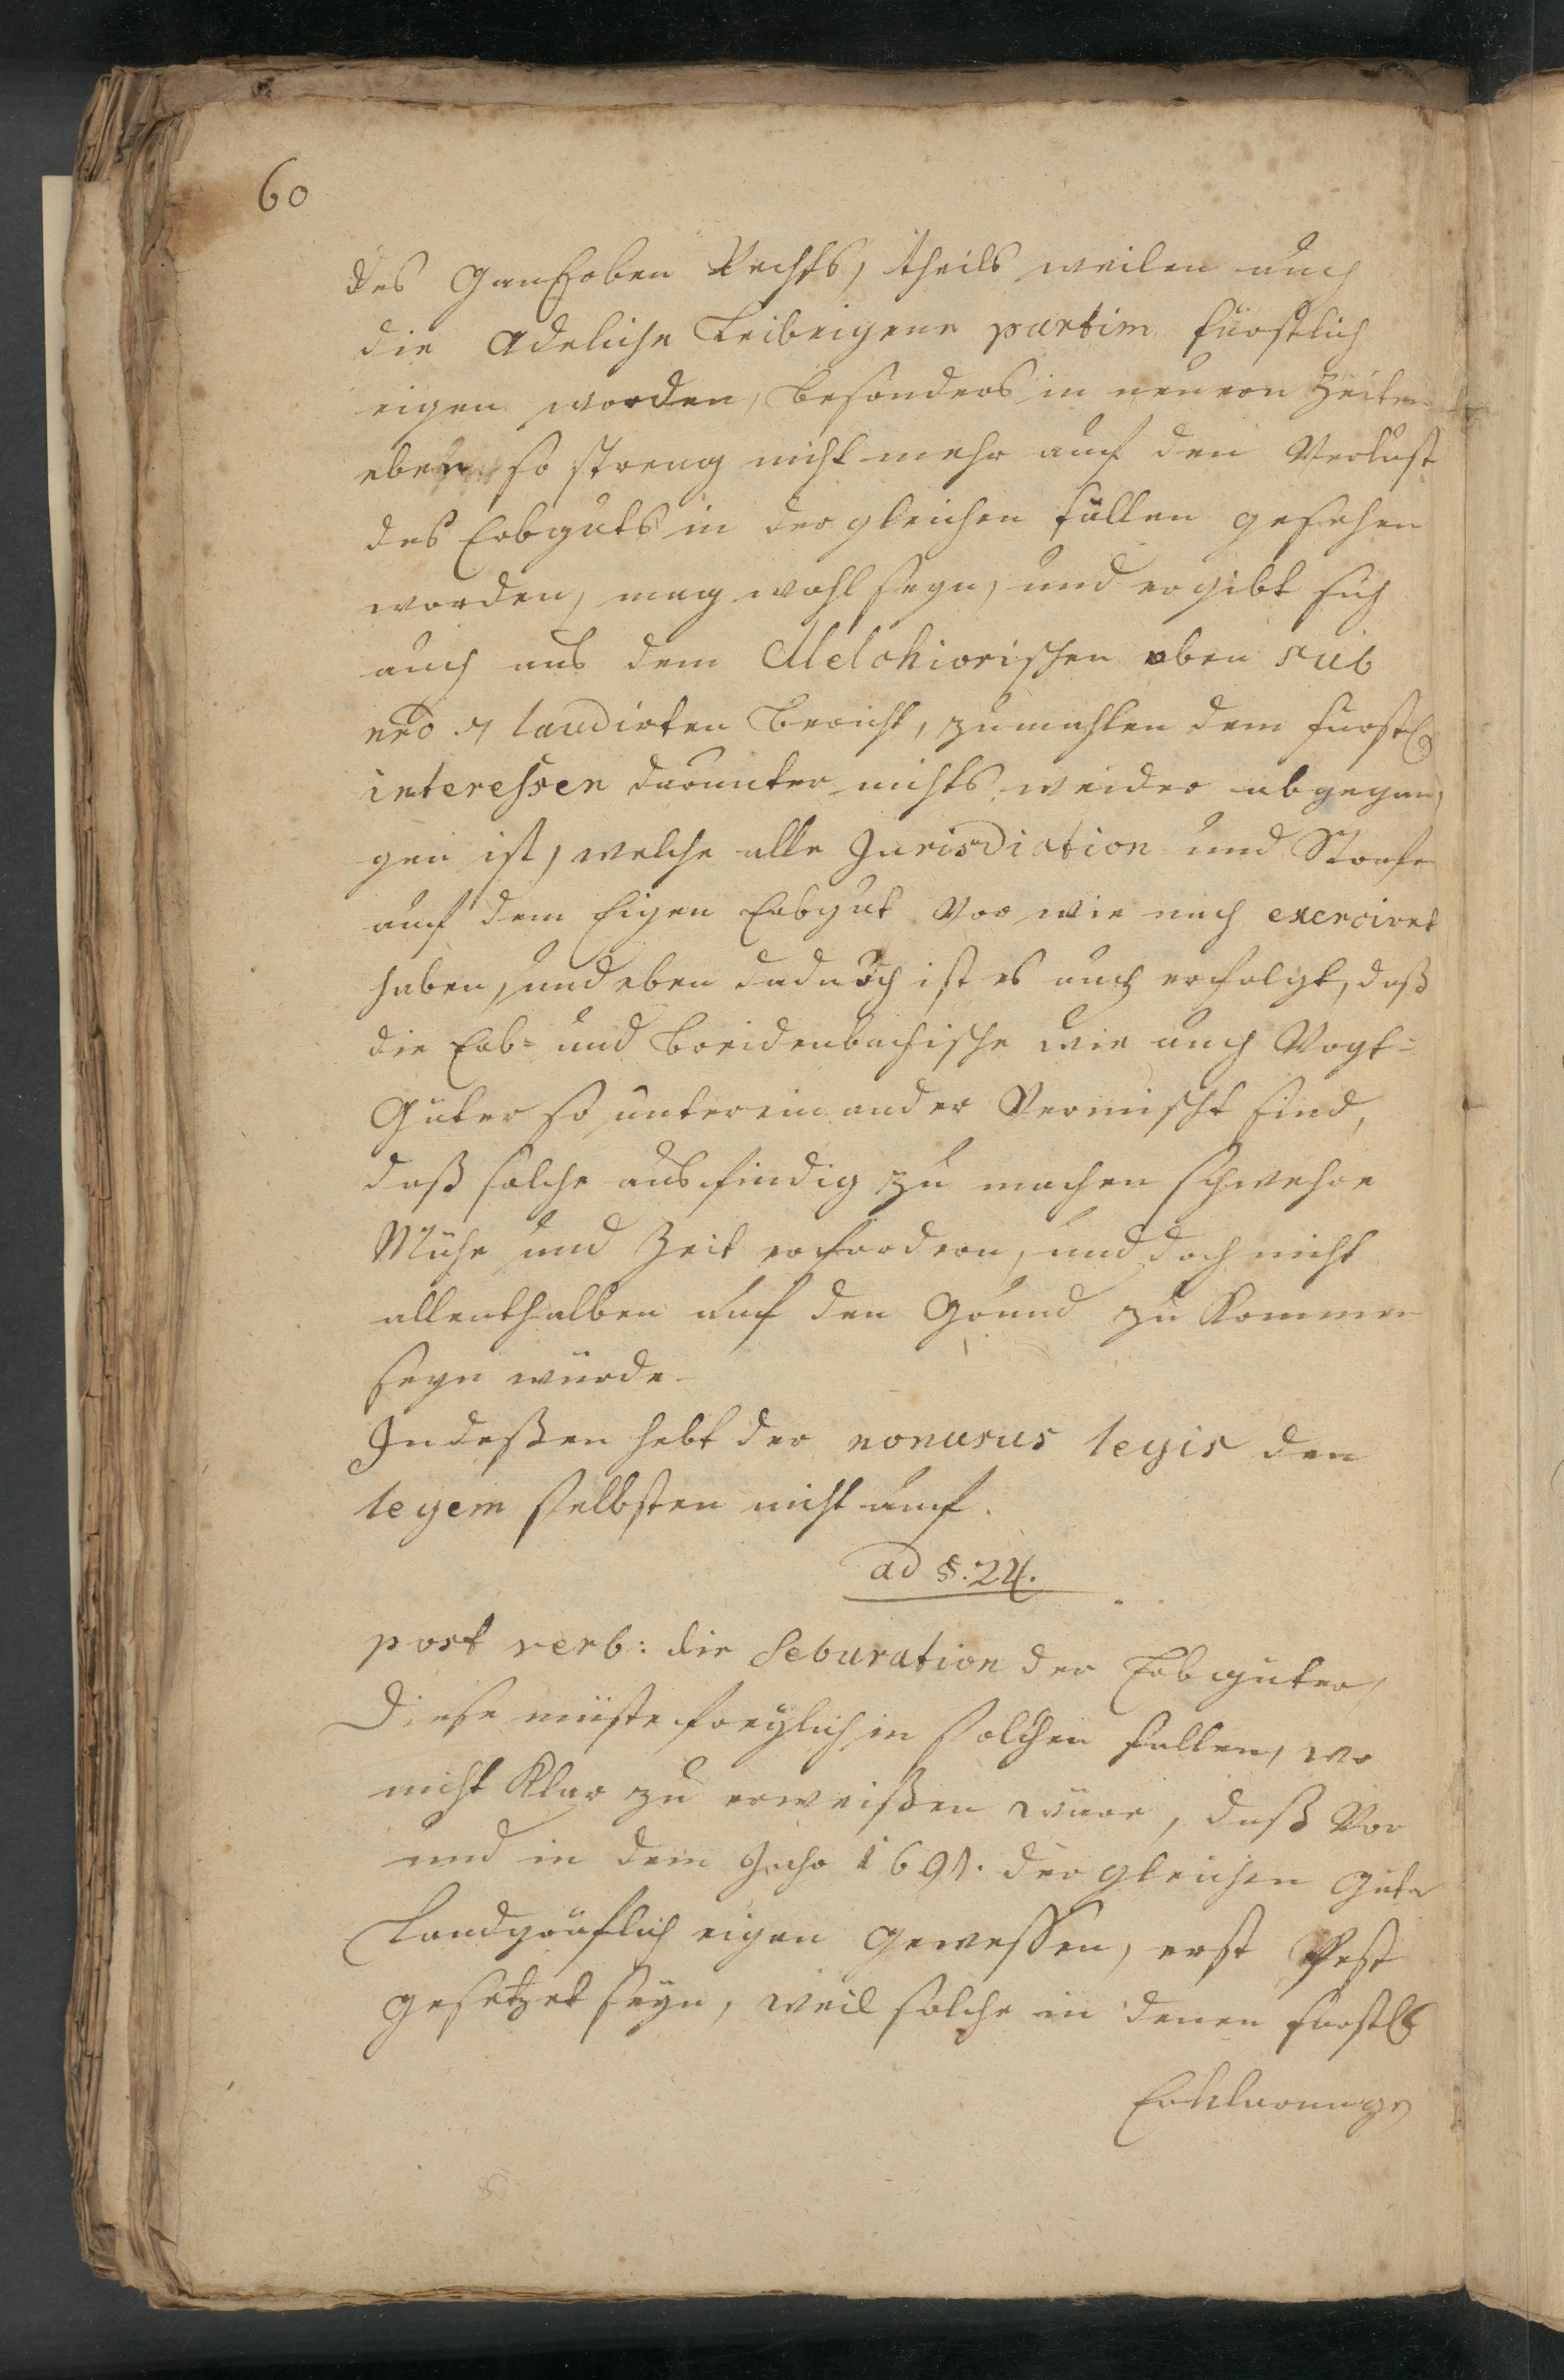 60
des Ganerben Rechts, theils weilen auch
die Adeliche Leibeigene partim fürstlich
eigen worden, besonders in neuern Zeiten
eben so streng nicht mehr auf den Verlust
des Erbguts in dergleichen fällen gesehen
worden, mag wohl seyn, und ergibt sich
auch aus dem Melchiorischen oben sub
nro. 7 laudirten Bericht, zumahlen dem fürstl.
interessen darunter nichts weider abgegan,
gen ist, welche alle Jurisdiction und Strafe
auf dem Eigen Erbgut Vor wie nach exerciret
haben, und eben dadurch ist es auch erfolgt, daß
die Erb- und Breidenbachische wie auch Vogt-
Güter so untereinander Vermischt sind,
daß solche ausfindig zu machen schwehre
Mühe und Zeit erfordern, und doch nicht
allenthalben auf den Grund zu Kommen
seyn würde.
Indeßen hebt der nonusus legis den
legem selbsten nicht auf.
ad §. 24.
post verb: die Seburation der Erbgüter,
Diese müste freylich in solchen fällen, wo
nicht Klar zu erweißen wäre, daß Vor
und in dem Jahr 1691. dergleichen Güter
Landgräflich eigen gewessen, erst Vest
gesetzet seyn, weil solche in denen fürstl.
Erklärungs